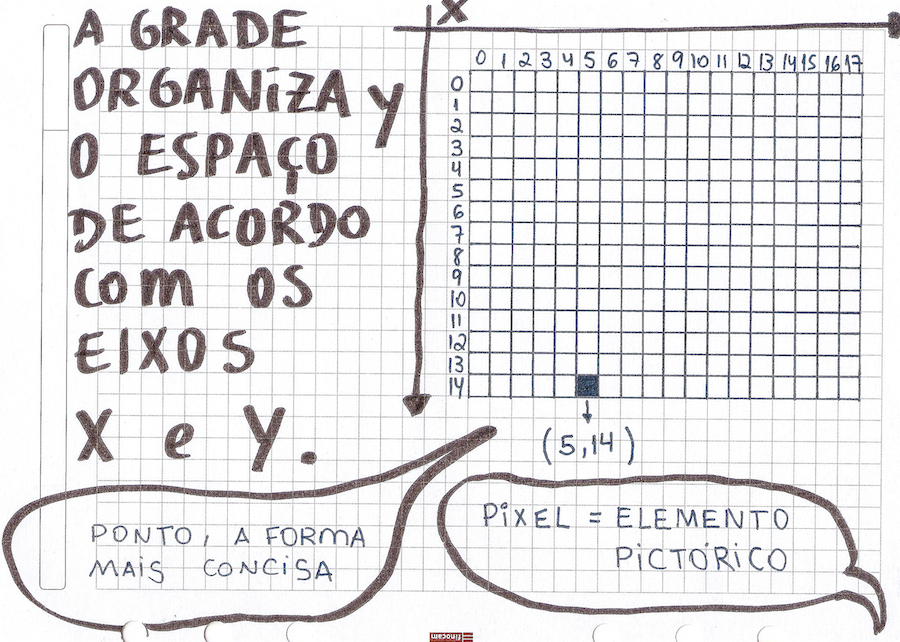 A GRADE
ORGANIZA
O ESPAÇO
DE ACORDO
COM OS
EIXOS
X e Y.
X
Y
0 1 2 3 4 5 6 7 8 9 10 11 12 13 14 15 16 17
0
1
2
3
4
5
6
7
8
9
10
11
12
13
14
(5,14)
PONTO, A FORMA
MAIS CONCISA
PIXEL = ELEMENTO
PICTÓRICO
finocam